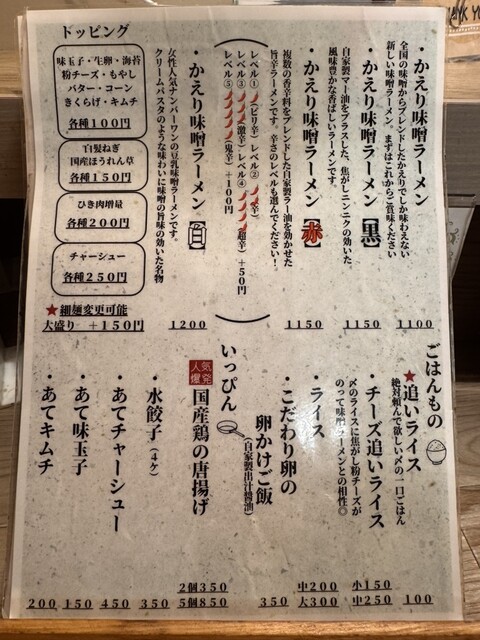 ・かえり味噌ラーメン
全国の味噌からブレンドしたかえりでしか味わえない
新しい味噌ラーメン まずはこれからご賞味ください
1100
・かえり味噌ラーメン【黒】
自家製マー油をプラスした、焦がしニンニクの効いた
風味豊かな香ばしいラーメンです。
1150
・かえり味噌ラーメン【赤】
複数の香辛料をブレンドした自家製ラー油を効かせた
旨辛ラーメンです。辛さのレベルも選んでください！
レベル①（ピリ辛）レベル②（辛）
レベル③（激辛）レベル④（超辛）＋50円
レベル⑤（鬼辛）＋100円
1150
・かえり味噌ラーメン【白】
女性人気ナンバーワンの豆乳味噌ラーメンです。
クリームパスタのような味わいに味噌の旨味の効いた名物
1200
トッピング
味玉子・生卵・海苔
粉チーズ・もやし
バター・コーン
きくらげ・キムチ
各種100円
白髪ねぎ
国産ほうれん草
各種150円
ひき肉増量
各種200円
チャーシュー
各種250円
★細麺変更可能
大盛り ＋150円
ごはんもの
★追いライス
絶対頼んで欲しい〆の一口ごはん
100
・チーズ追いライス
〆のライスに焦がし粉チーズが
のって味噌ラーメンとの相性◎
小150
中250
・ライス
中200
大300
・こだわり卵の
卵かけご飯
（自家製出汁醤油）
350
いっぴん
人気爆発
国産鶏の唐揚げ
2個350
5個850
・水餃子（4ケ）
350
・あてチャーシュー
450
・あて味玉子
150
・あてキムチ
200